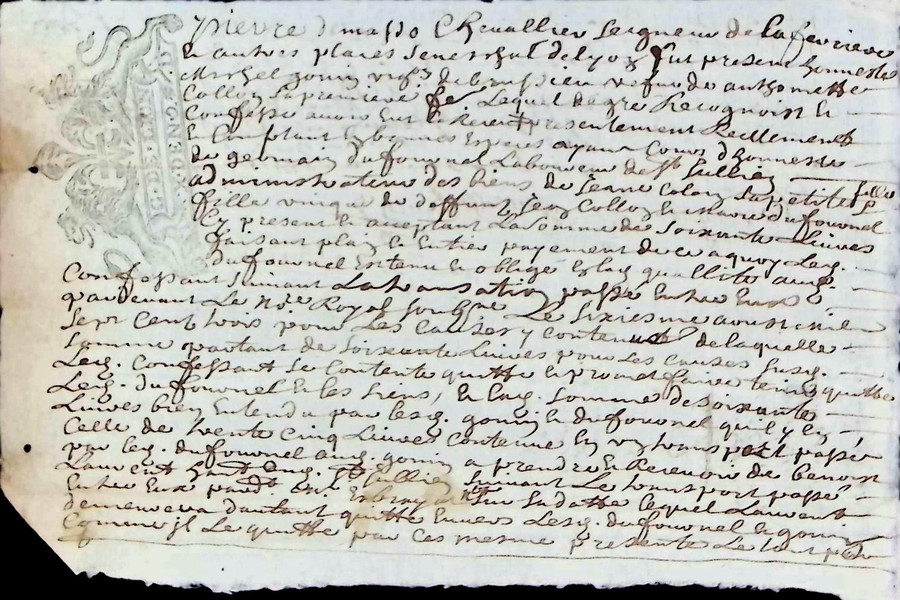 pierre de masso Chevallier seigneur de la ferriere
& autres places seneschal de lyon fut present honneste
Michel gonin
Collon sa premiere Lequel de gre Recognoist &
Confesse avoir eut & Receu presentement Reellement
& Comptant En bonnes Especes ayant Cours d'honneste
de germain dufournel Laboureur de St Jullien
administrateur des biens de Jeanne Colon sa petite fille
fille unique de deffunt Jean Collon & marie dufournel
Cy present & acceptant La somme de soixante Livres
faisant plain & Entier payement de ce a quoy Led.
dufournel Est tenu & obligé En lad. quallitté aud.
Confessant suivant La transaction passé Entre Eux
pardevant Le Nore Royal soubsne Le sixiesme aoust mil
sept Cent trois pour Les Causes y Contenues de laquelle
somme partant de soixante Livres pour Les causes susd.
Led. Confessant se Contente quitte & promet faire tenir quitte
Led. dufournel & les siens, En lad. somme de soixante
Livres bien Entendu par lesd. gonin & dufournel quil y
Celle de trente Cinq Livres Contenue En transport passé
par led. dufournel aud. gonin a prendre & Recevoir de benoist
Laurent dud. St Jullien suivant Le transport passé
Entre Eux pardt sur sa datte lequel Laurent
demeurera dautant quitte Envers Lesd. dufournel & gonin
Comme jl Le quitte par Ces mesme presente Le tout
G. DE LYON